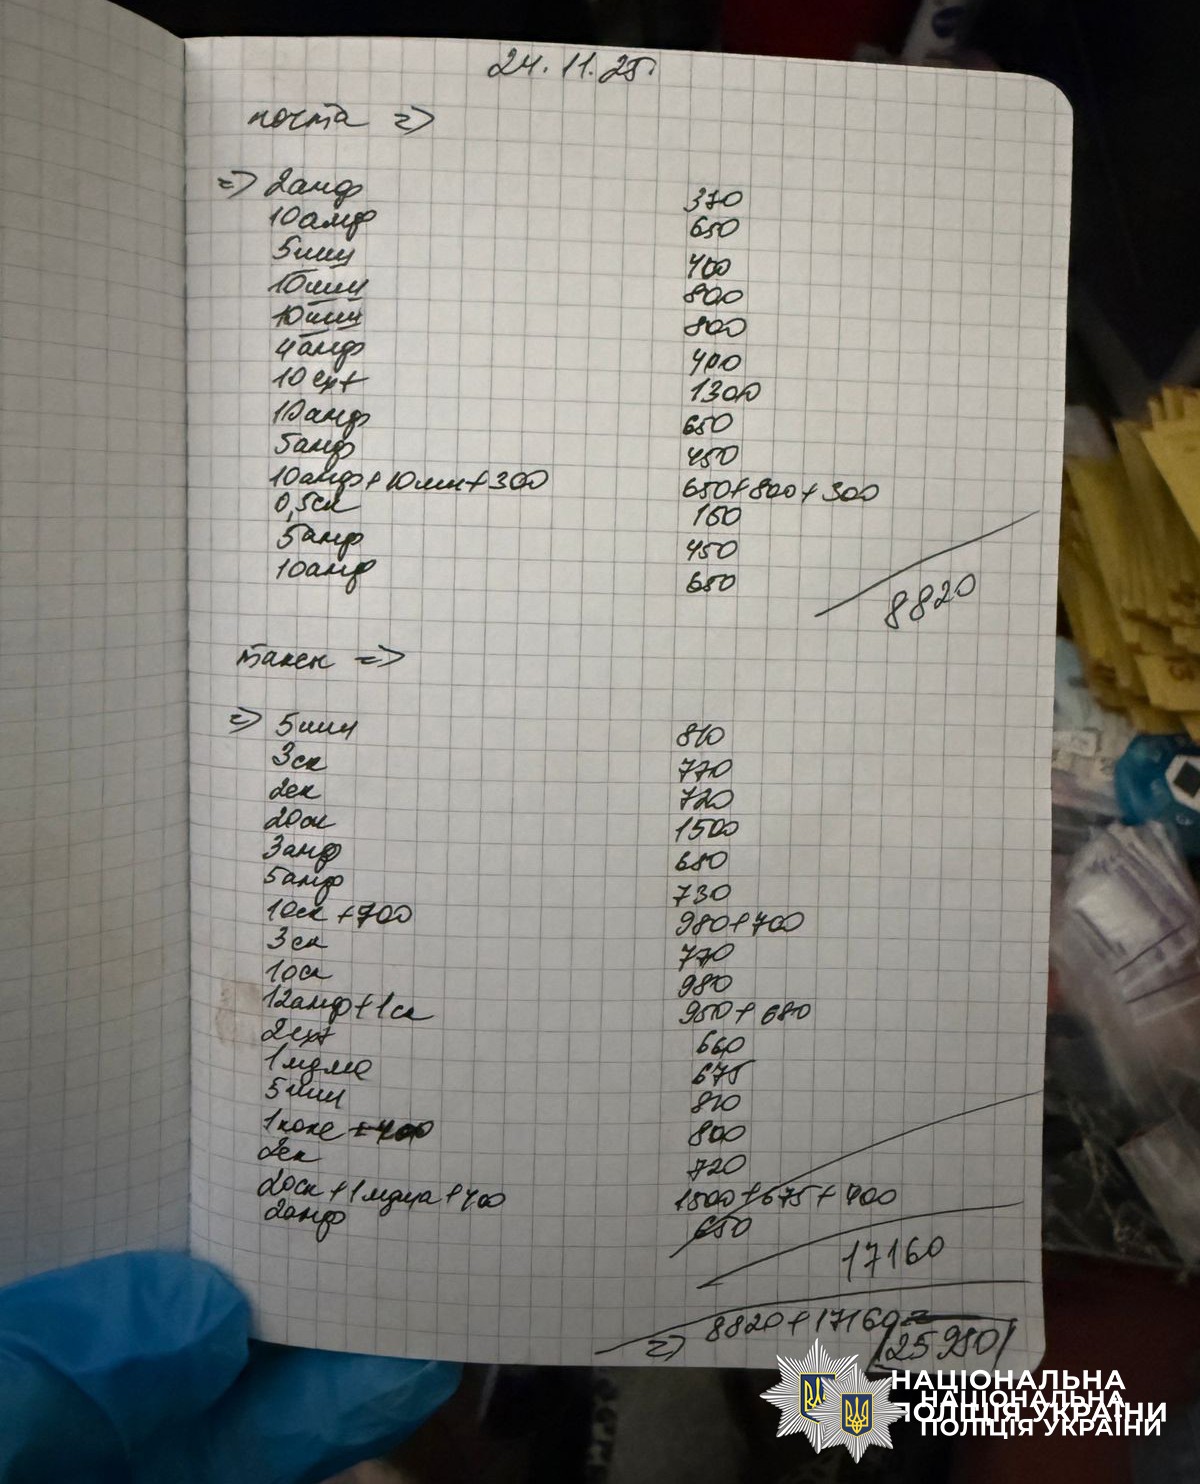 24.11.25.
почта =>
=> 2амф 370
10амф 650
5миц 400
10миц 800
10миц 800
4амф 400
10 ext 1300
10амф 650
5амф 450
10амф+10миц+300 650+800+300
0,5ск 150
5амф 450
10амф 650
8820
=> 5миц 810
3ск 770
2ск 720
20ск 1500
3амф 680
5амф 730
10ск +700 980+700
3ск 770
10ск 980
12амф+1ск 950+680
2ext 660
1мдма 675
5миц 810
1коке 800
2ск 720
20ск+1мдма+400 1500+675+400
2амф 650
17160
=> 8820+17160=
25980
НАЦІОНАЛЬНА
НАЦІОНАЛЬНА
ПОЛІЦІЯ УКРАЇНИ
ПОЛІЦІЯ УКРАЇНИ